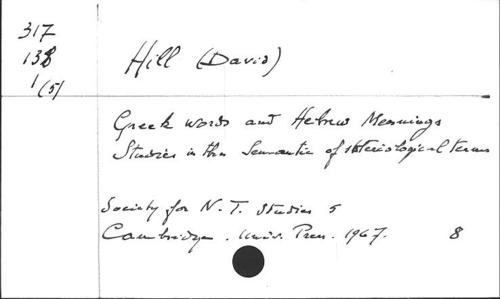 317
138
1 (5)
Hill (David)
Greek words and Hebrew Meanings
Studies in the Semantic of soteriological terms
Society for N. T. Studies 5
Cambridge. Univ. Press. 1967. 8